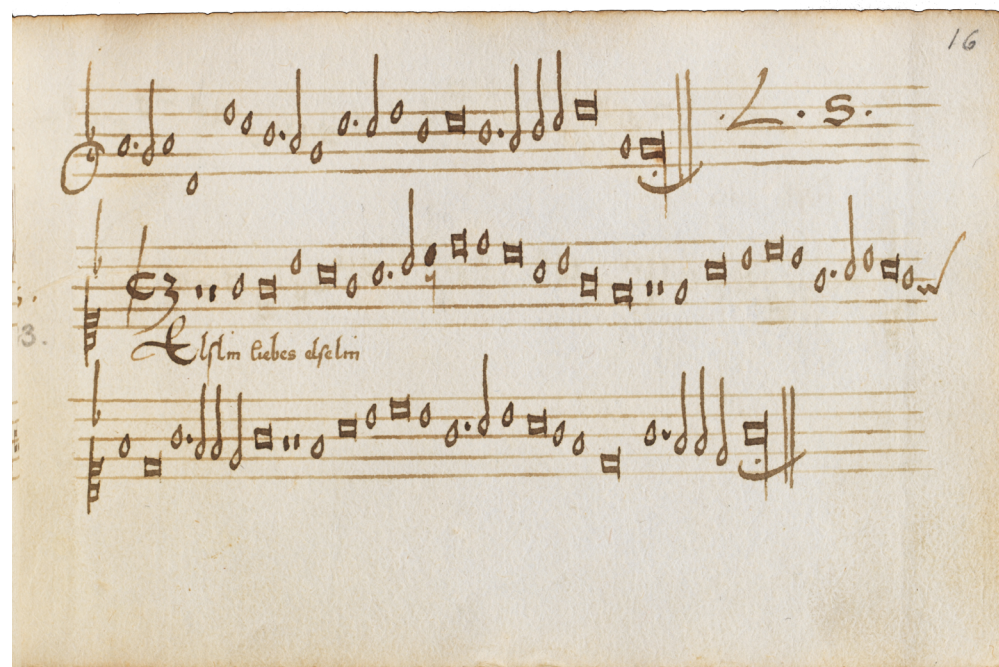 16
L. S.
3.
Elslin liebes elselin